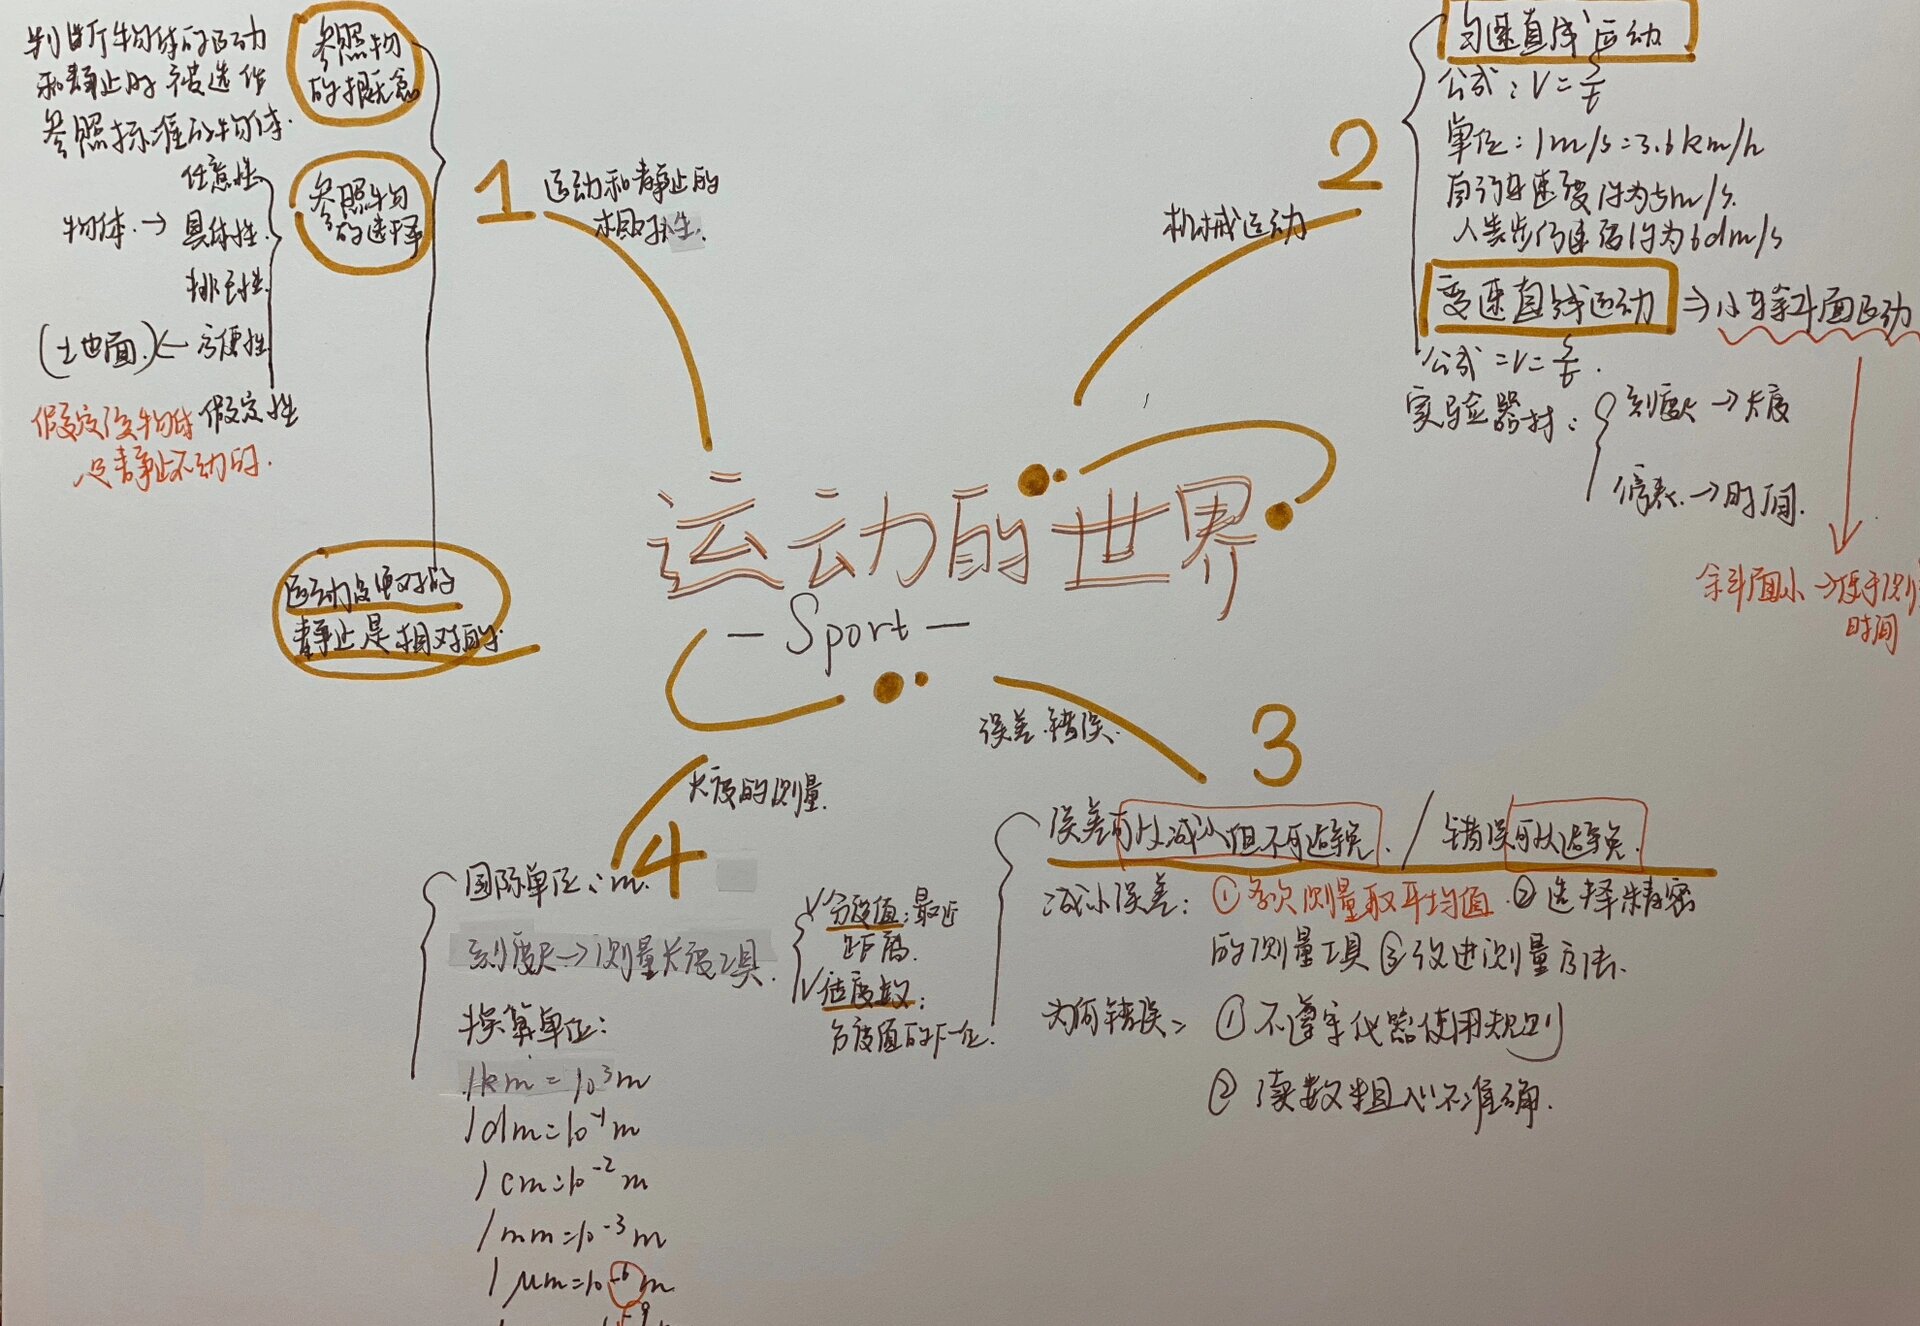 运动的世界
- Sport -
1
运动和静止的
相对性.
参照物
的概念
判断物体的运动
和静止时被选作
参照标准的物体.
参照物
的选择
任意性
物体. → 具体性.
排己性.
(土地面.) ← 方便性
假定性
假定该物体
是静止不动的.
运动是绝对的
静止是相对的.
2
机械运动
匀速直线运动
公式: V = s/t
单位: 1m/s = 3.6km/h
自行车速度约为5m/s.
人类步行速度约为6dm/s
变速直线运动 ⇒ 小车斜面运动
公式 = V = s/t.
实验器材:
刻度尺 → 长度
停表. → 时间.
斜面小 → 便于测
时间
3
误差.错误.
误差可以减小但不可避免. / 错误可以避免.
减小误差: ① 多次测量取平均值. ② 选择精密
的测量工具 ③ 改进测量方法.
为何错误: ① 不遵守仪器使用规则
② 读数粗心不准确.
4
长度的测量.
国际单位: m.
刻度尺 → 测量长度工具.
分度值: 最近
距离.
估度数:
分度值的下一位.
换算单位:
1km = 10³m
1dm = 10⁻¹m
1cm = 10⁻²m
1mm = 10⁻³m
1μm = 10⁻⁶m